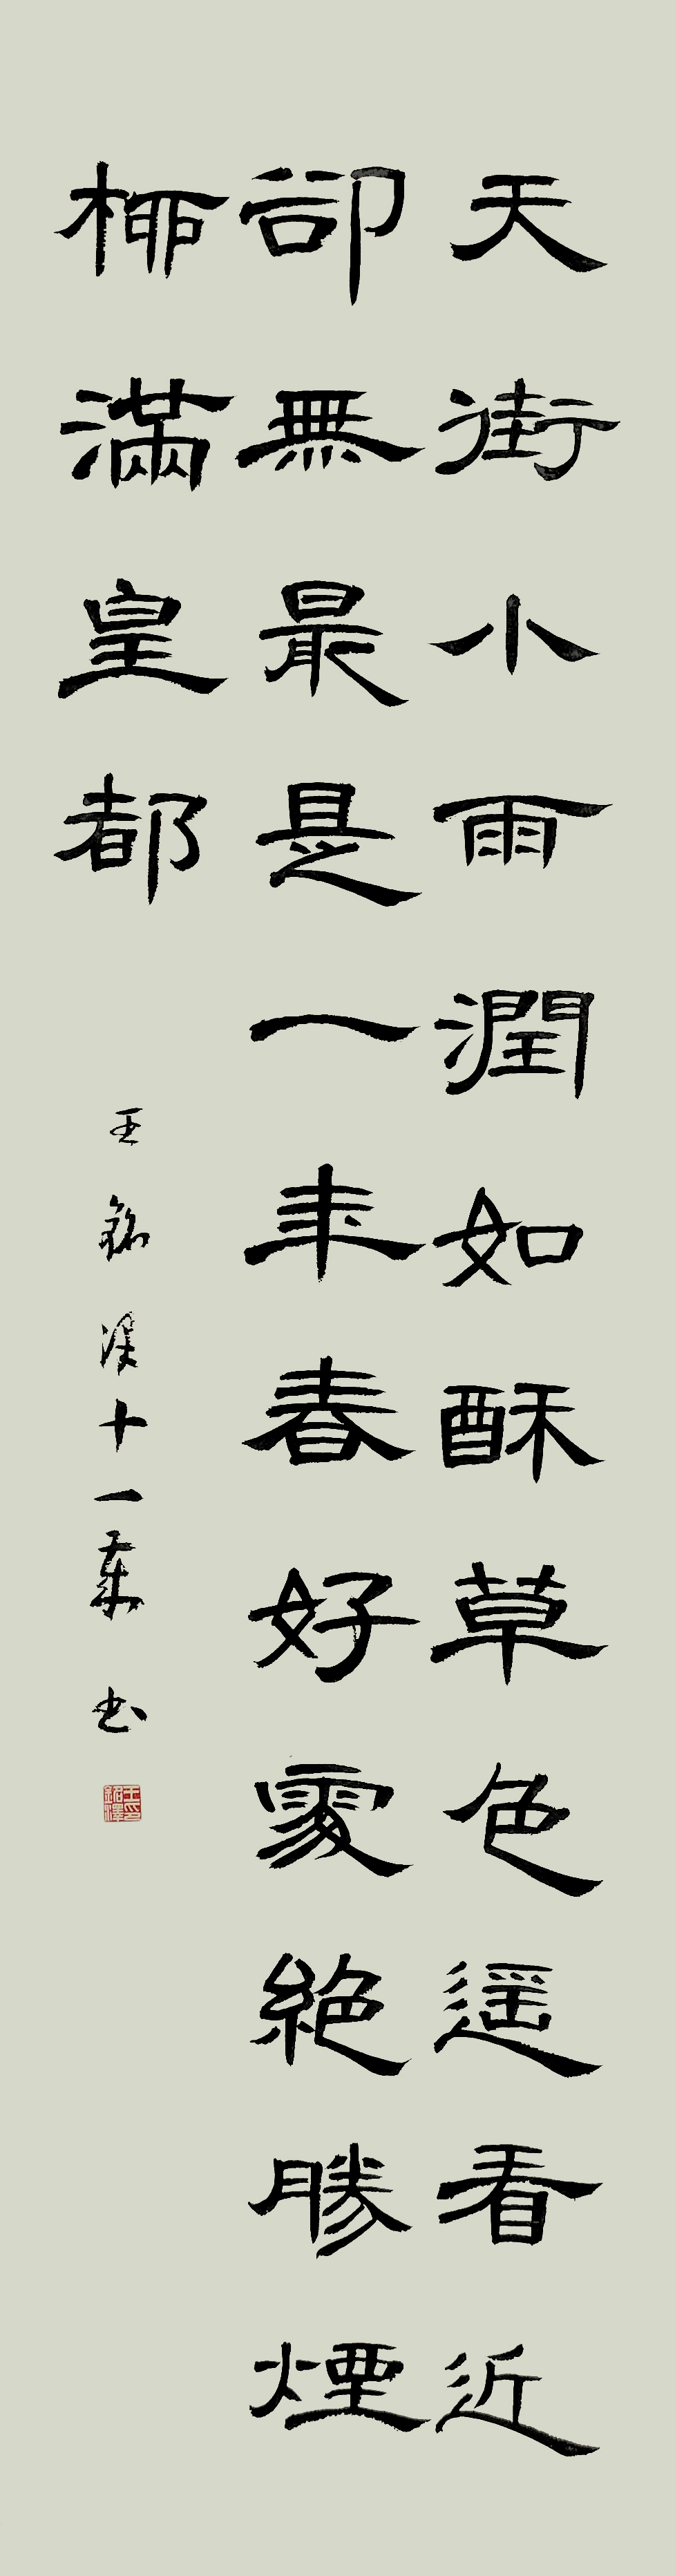 天街小雨潤如酥草色遥看近
卻無最是一年春好處絕勝煙
桞滿皇都
王銘澤十一歲書
王印銘澤